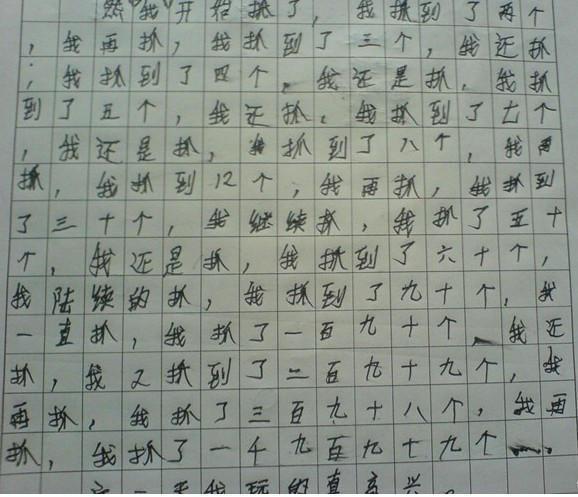 然我开始抓了，我抓到了两个
，我再抓，我抓到了三个，我还抓
；我抓到了四个，我还是抓，我抓
到了五个，我还抓。我抓到了七个
，我还是抓，我抓到了八个，我再
抓，我抓到12个，我再抓，我抓到
了三十个，我继续抓，我抓了五十
个，我还是抓，我抓到了六十个，
我陆续的抓，我抓到了九十个，我
一直抓，我抓了一百九十个，我还
抓，我又抓到了二百九十九个，我
再抓，我抓了三百九十八个，我再
抓，我抓了一千九百九十九个
一天我玩的真高兴。